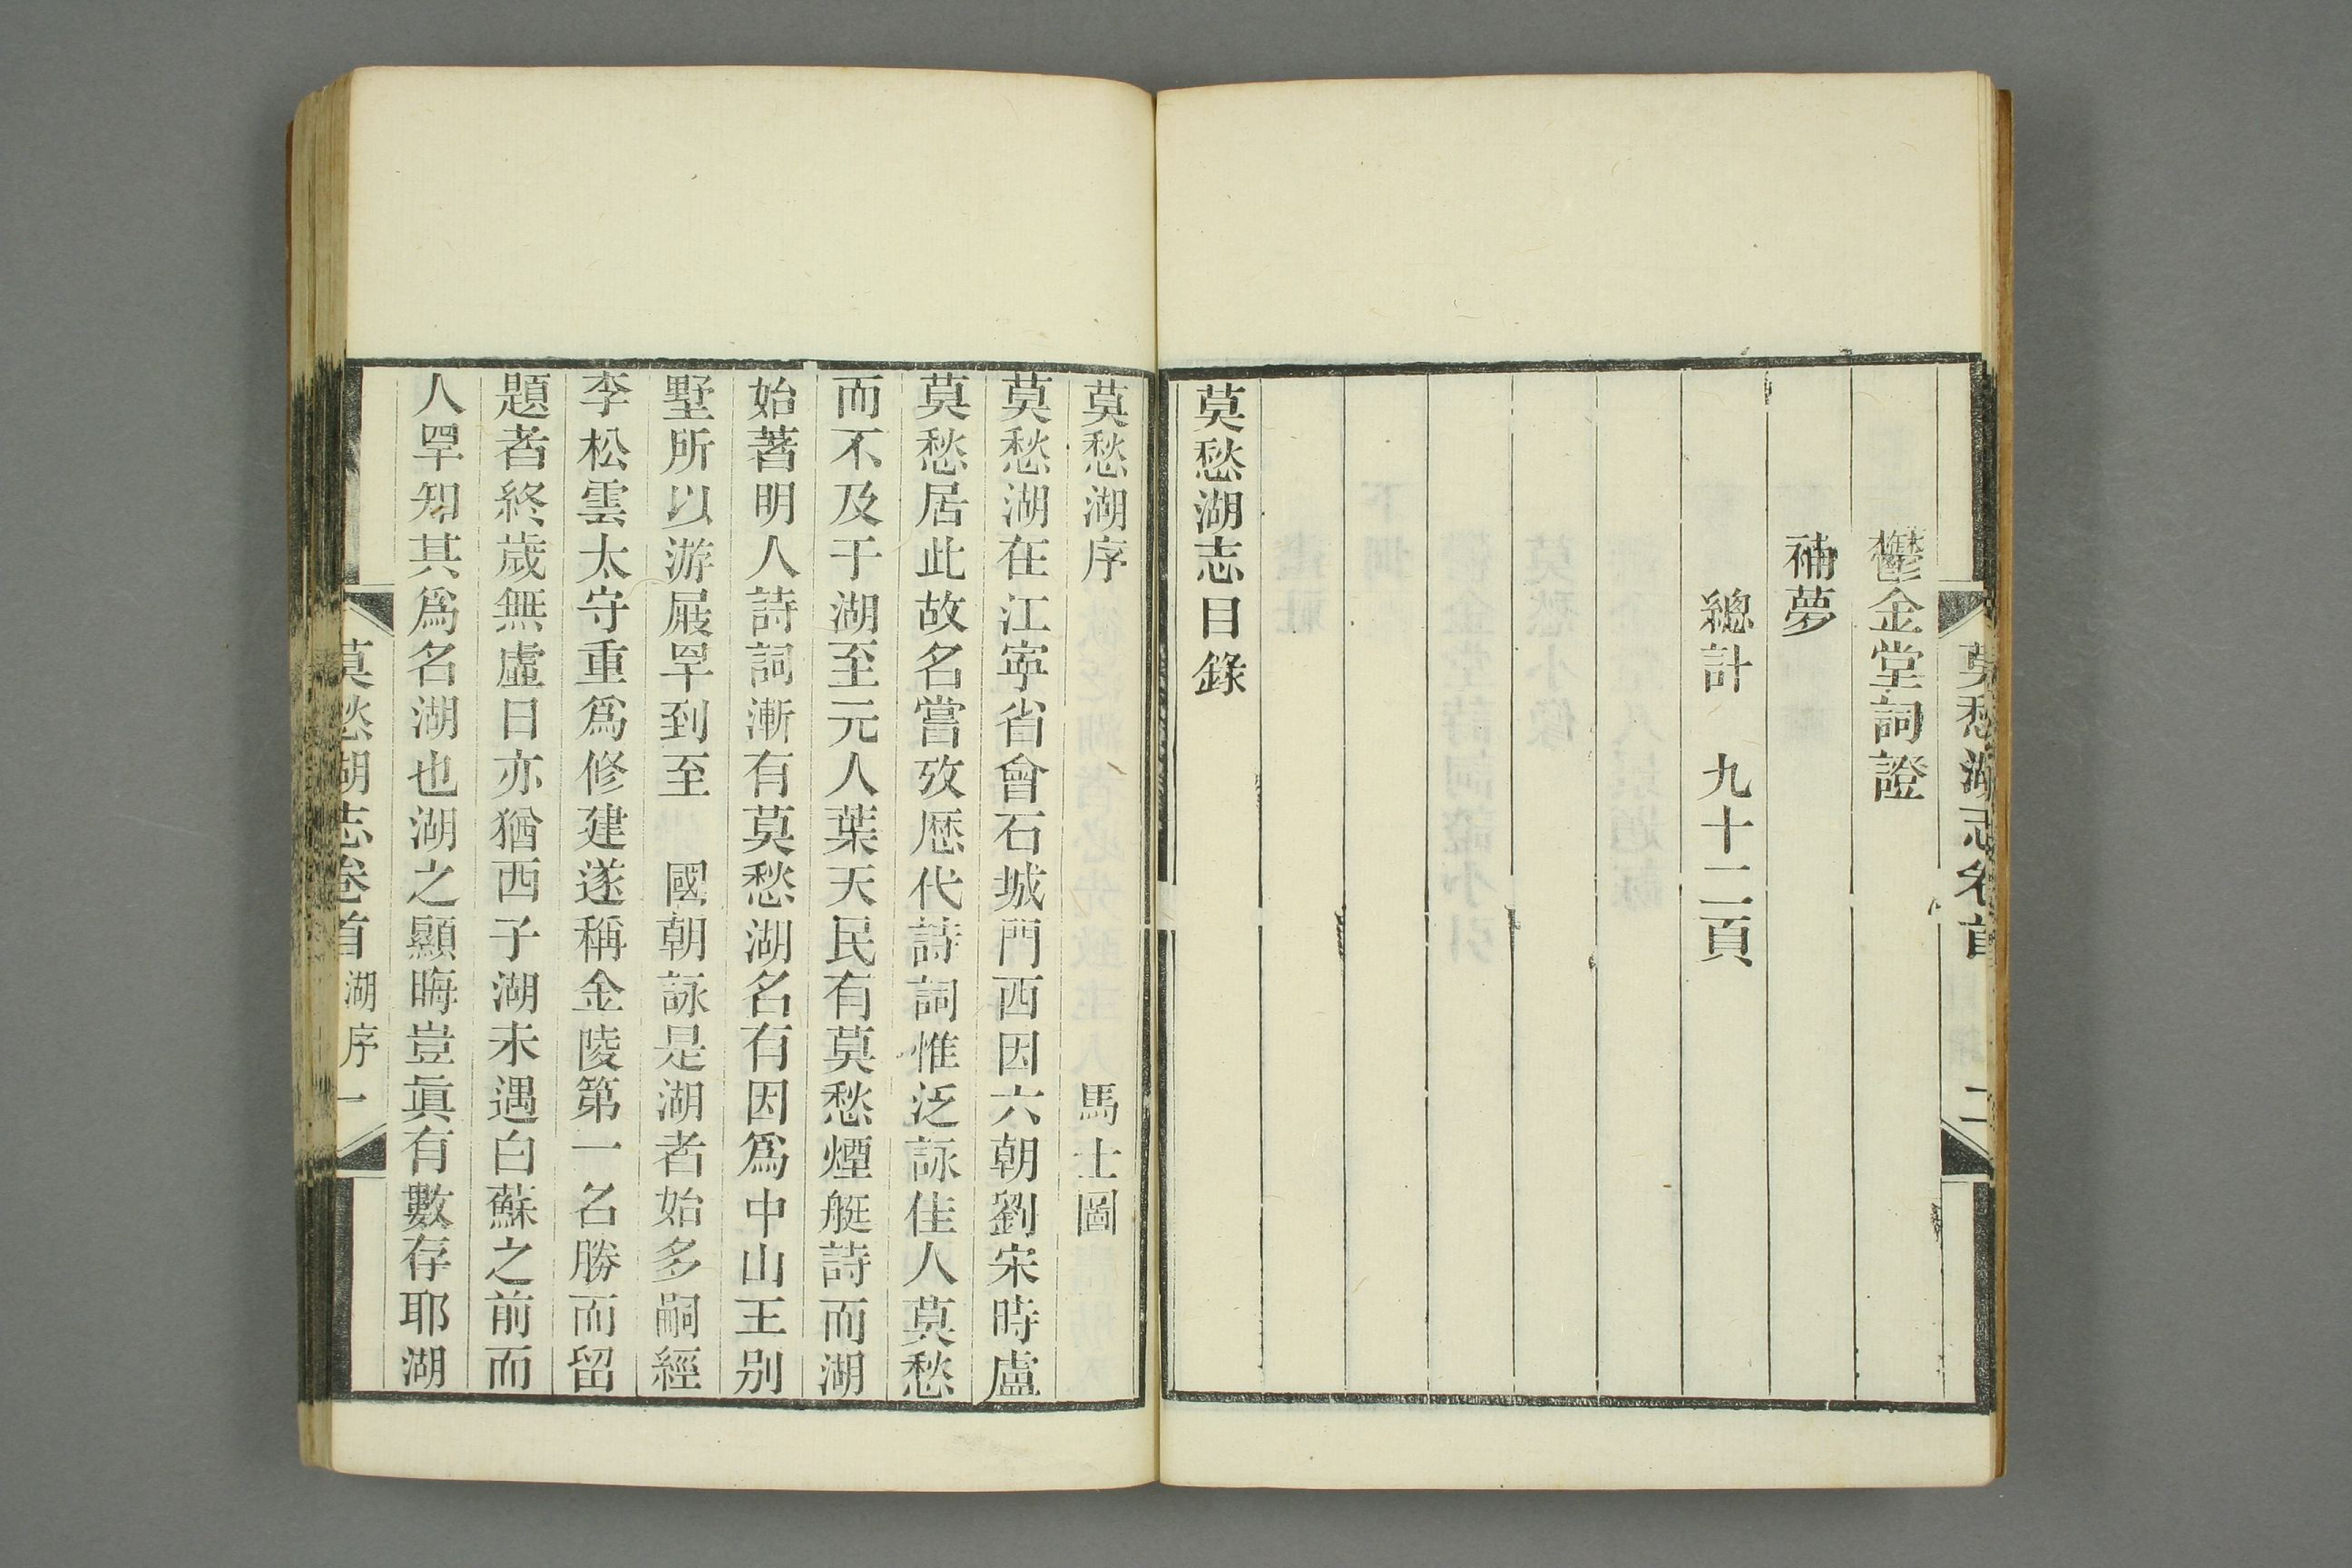 莫愁湖志卷首
二
鬱金堂詞證
補夢
總計　九十二頁
莫愁湖志目錄
莫愁湖序　馬士圖
莫愁湖在江寧省會石城門西因六朝劉宋時盧
莫愁居此故名嘗攷歷代詩詞惟泛詠佳人莫愁
而不及于湖至元人葉天民有莫愁煙艇詩而湖
始著明人詩詞漸有莫愁湖名有因爲中山王别
墅所以游屐罕到至　國朝詠是湖者始多嗣經
李松雲太守重爲修建遂稱金陵第一名勝而留
題者終歲無虛日亦猶西子湖未遇白蘇之前而
人罕知其爲名湖也湖之顯晦豈眞有數存耶湖
莫愁湖志卷首 湖序 一